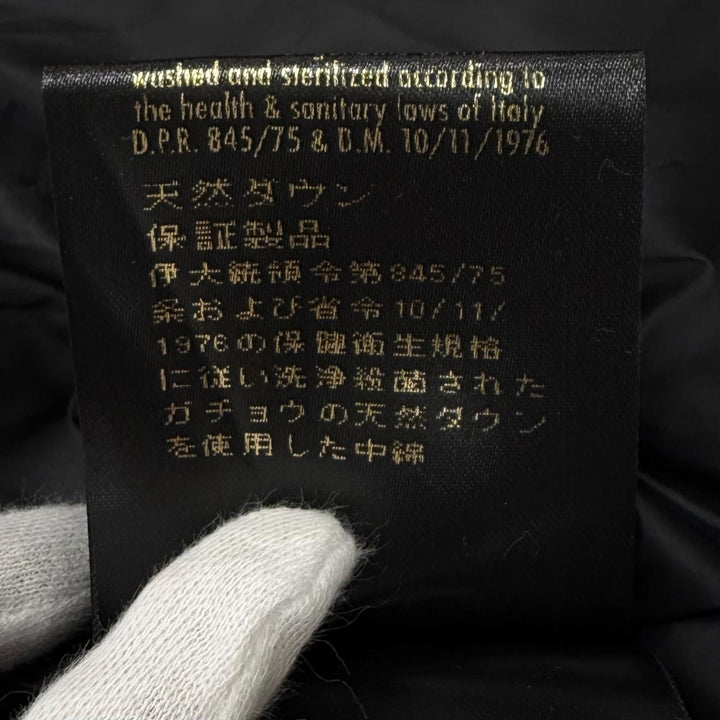 washed and sterilized according to
the health & sanitary laws of Italy
D.P.R. 845/75 & D.M. 10/11/1976
天然ダウン
保証製品
伊大統領令第845/75
条および省令10/11/
1976の保健衛生規格
に従い洗浄殺菌された
ガチョウの天然ダウン
を使用した中綿